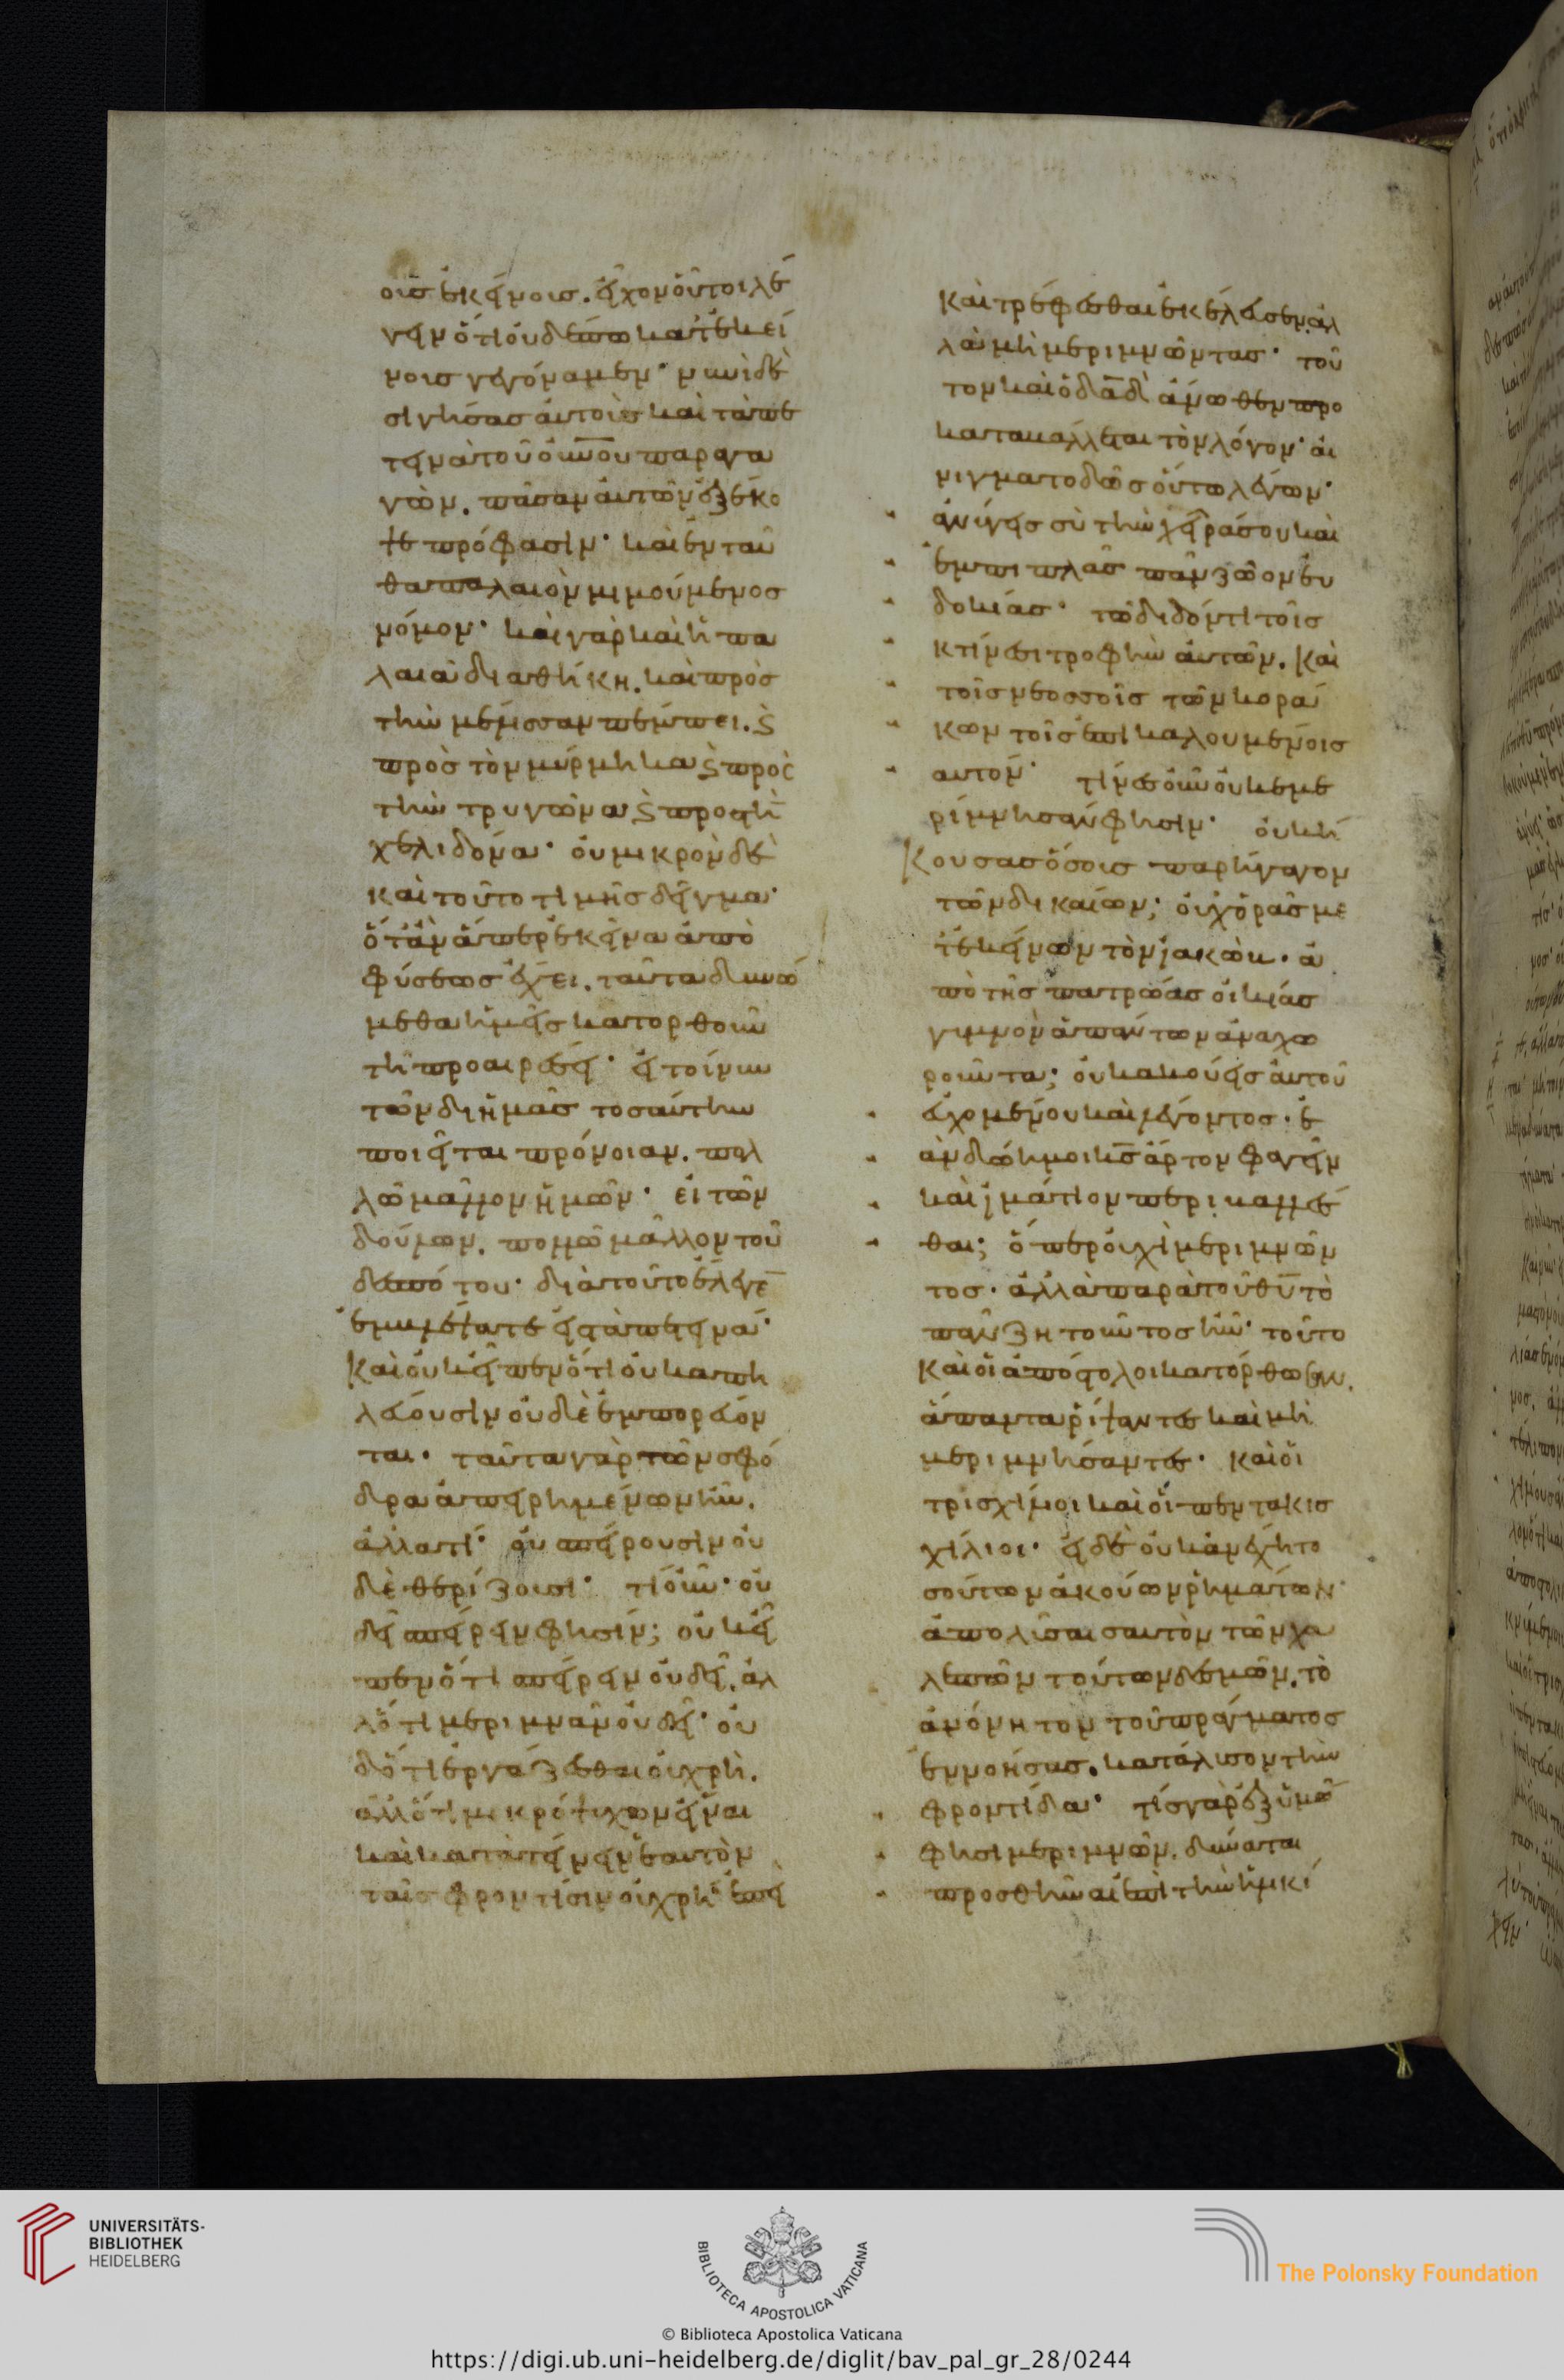 οις ἐκείνοις. εἶχον οὗτοι λέ
γειν ὅτι οὐδέπω κατ' ἐκεί
νοις γεγόναμεν· νυνὶ δὲ
σιγήσας αὐτοὺς καὶ τὰ πε
τεινὰ τοῦ οὐνου παραγα
γὼν. πᾶσαν αὐτῶν ἐξέκο
ψε πρόφασιν· καὶ ἐνταῦ
θα παλαιὸν μιμούμενος
νόμον· καὶ γὰρ καὶ ἡ πα
λαιὰ διαθήκη. καὶ πρὸς
τὴν μέλισσαν πέμπει. ϗ
πρὸς τὸν μύρμηκα ϗ πρὸς
τὴν τρυγόνα ϗ προς τὴ
χελιδόνα· οὐ μικρὸν δὲ
καὶ τοῦτο τιμῆς δεῖγμα·
ὅταν ἅπερ ἐκεῖνα ἀπὸ
φύσεως ἔχει. ταῦτα δυνώ
μεθα ἡμεῖς κατορθοῦν
τῆ προαιρέσει· εἰ τοίνυν
τῶν δι ἡμᾶς τοσαύτην
ποιεῖται πρόνοιαν. πολ
λῶ μᾶλλον ἡμῶν· εἰ τῶν
δούλων. πολλῶ μᾶλλον τοῦ
δεσπότου· διὰ τοῦτο ἔλεγε
ἐμβλέψατε εἰς τὰ πετεινά·
Καὶ οὐκ εἶπεν ὅτι οὐ καπη
λεύουσιν οὐδὲ ἐμπορεύον
ται· ταῦτα γὰρ τῶν σφό
δρα ἀπειρημένων ἦν.
ἀλλὰ τί· οὐ σπείρουσιν οὐ
δὲ θερίζουσι· τί οὖν· οὐ
δεῖ σπείρειν φησίν; οὐκ εἶ
πεν ὅτι σπείρειν οὐ δεῖ. ἀλ
λ' ὅτι μεριμνᾶν οὐ δεῖ· οὐ
δ' ὅτι ἐργάζεσθαι οὐ χρὴ.
ἀλλ' ὅτι μικρόψυχον εἶναι
καὶ κατατείνειν ἑαυτὸν
ταῖς φροντίσιν οὐ χρὴ· ἐπεὶ
καὶ τρέφεσθαι ἐκέλευσεν. ἀλ
λὰ μὴ μεριμνῶντας· τοῦ
τον καὶ ὁ δαδ ἄνωθεν προ
καταβάλλεται τὸν λόγον· αἰ
νιγματοδῶς οὕτω λέγων·
ἀνοίγεις σὺ τὴν χεῖρά σου καὶ
ἐμπιπλᾶς πᾶν ζῶον εὐ
δοκίας· τῶ διδόντι τοῖς
κτήνεσι τροφὴν αὐτῶν. καὶ
τοῖς νεοσσοῖς τῶν κορά
κων τοῖς ἐπικαλουμένοις
αυτόν· τίνες οὖν οὐκ ἐμε
ρίμνησάν φησιν· οὐκ ἤ
Κουσας ὅσοις παρήγαγον
τῶν δικαίων; οὐχ ὁρᾶς με
τ' ἐκείνων τὸν ϊακὼβ. ἀ
πὸ τῆς πατρώας οἰκίας
γυμνὸν ἁπάντων ἀναχω
ροῦντα; οὐκ ἀκούεις αὐτοῦ
εὐχομένου καὶ λέγοντος. ἐ
ὰν δώη μοι κς ἄρτον φαγεῖν
καὶ ϊμάτιον περιβαλλέσ
θαι; ὅπερ οὐχὶ μεριμνῶν
τος. ἀλλὰ παρὰ τοῦ θυ τὸ
πᾶν ζητοῦντος ἦν· τοῦτο
Καὶ οἱ ἀπόστολοι κατόρθωσαν.
ἅπαντα ῥίψαντες καὶ μὴ
μεριμνήσαντες· καὶ οἱ
τρισχίλιοι καὶ οἱ πεντακισ
χίλιοι· εἰ δὲ οὐκ ἀνέχη το
σούτων ἀκούων ρημάτων
ἀπολῦσαι σαυτὸν τῶν χα
λεπῶν τούτων δεσμῶν. τὸ
ἀνόνητον τοῦ πράγματος
ἐννοήσας. κατάλυσον τὴν
φροντίδα· τίς γὰρ ἐξ ὑμῶ
φησι μεριμνῶν. δύναται
προσθῆναι ἐπὶ τὴν ἡλικί
UNIVERSITÄTS-
BIBLIOTHEK
HEIDELBERG
BIBLIOTECA APOSTOLICA VATICANA
The Polonsky Foundation
© Biblioteca Apostolica Vaticana
https://digi.ub.uni-heidelberg.de/diglit/bav_pal_gr_28/0244